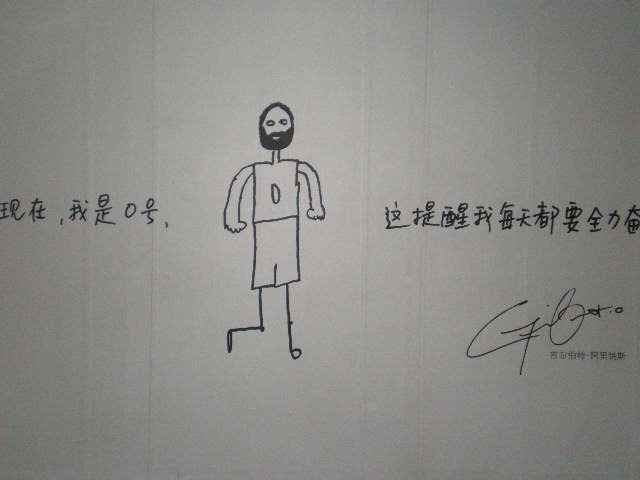 现在,我是0号,
0
这提醒我每天都要全力奋
吉尔伯特·阿里纳斯